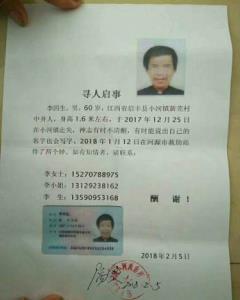 寻人启事
李国生，男，60岁，江西省信丰县小河镇新荒村
中井人，身高1.6米左右，于2017年12月25日
在小河镇走失，神志有时不清醒，有时能说出自己的
名字也会写字，2018年1月12日在河源市救助站
待了两个钟。如有知情者，请联系：
李女士：15270788975
李小姐：13129238162
李 生：13590953168
酬谢！
2018年2月5日